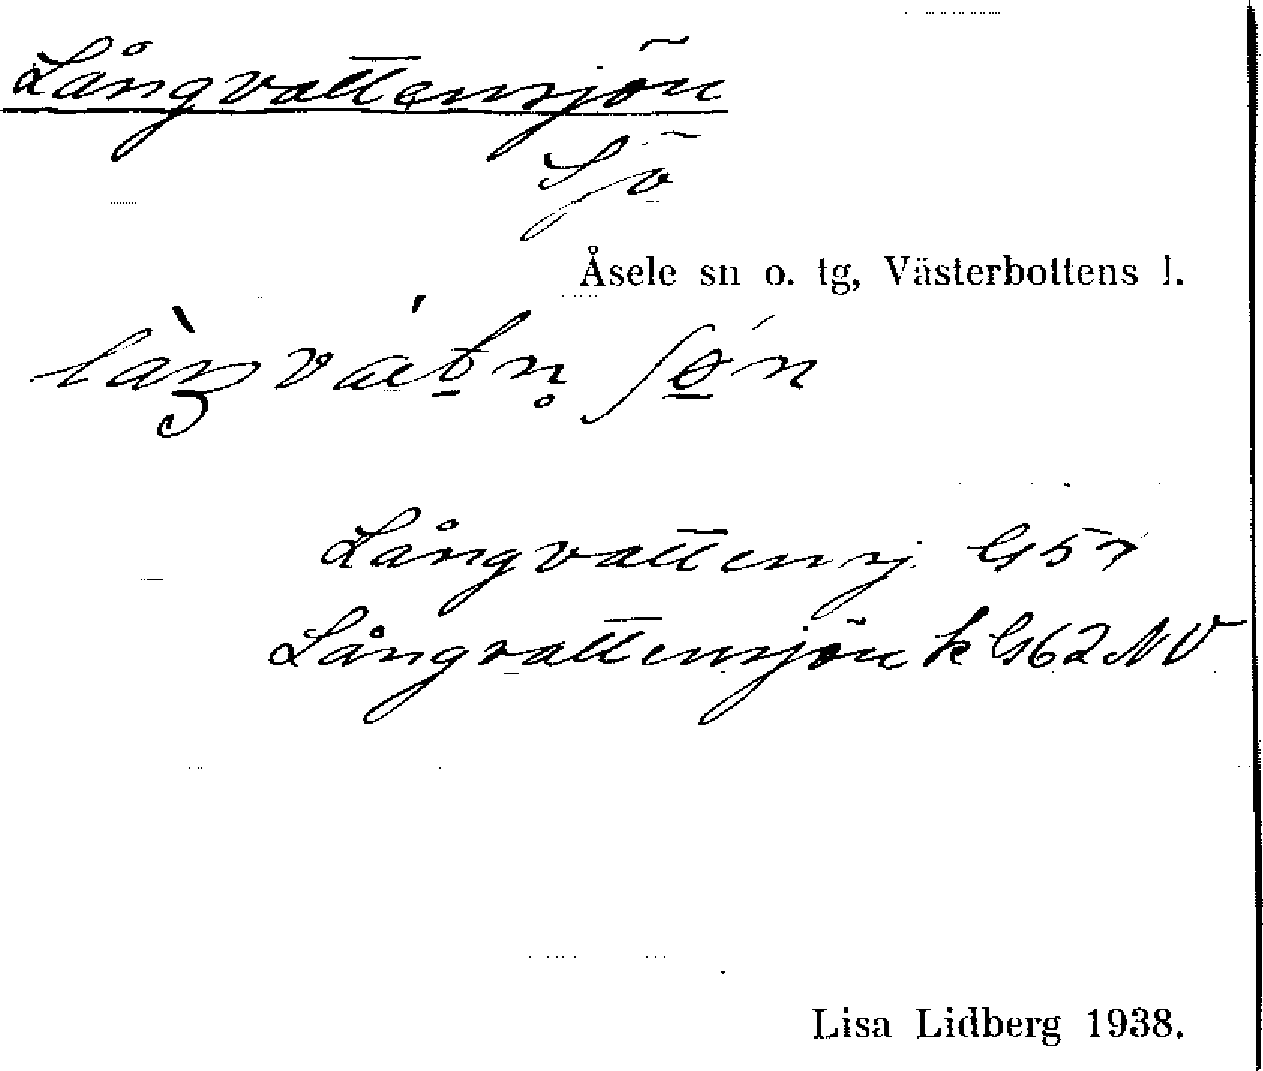 Långvattensjön
Sjö
Åsele sn o. tg, Västerbottens l.
Långvattensj. G57
Långvattensjön k G62NV
Lisa Lidberg 1938.